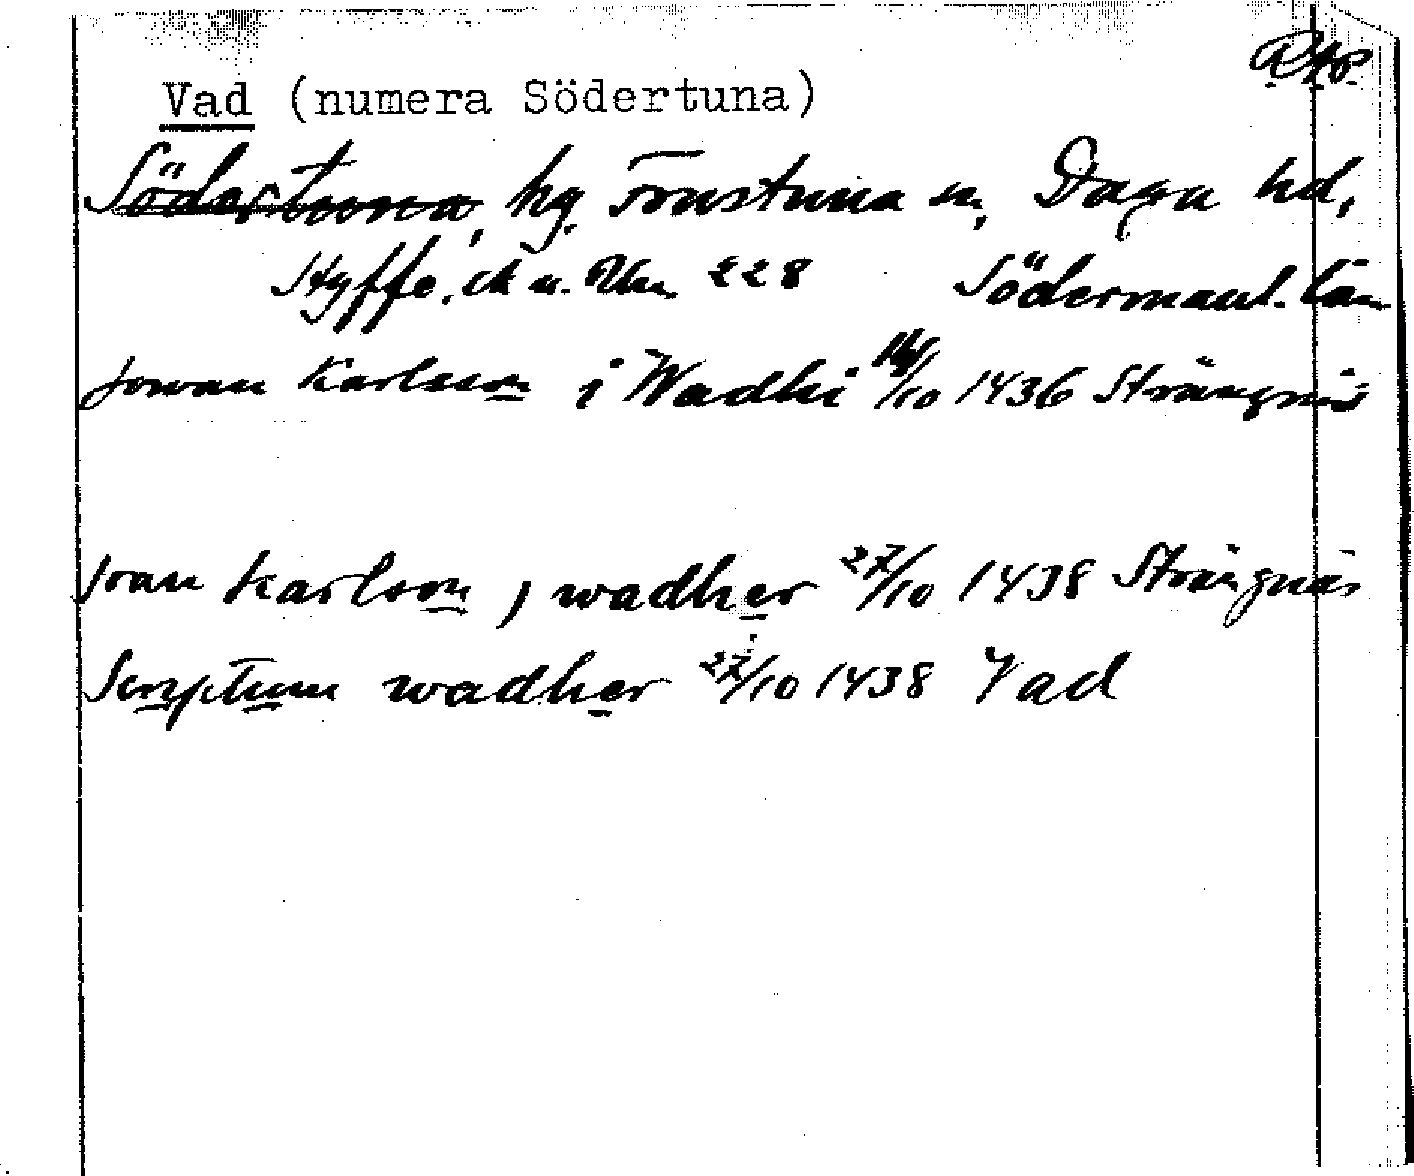 RAp
Vad (numera Södertuna)
Södertuna, hg. Frustuna sn, Daga hd,
Styffe, 228 Södermanl. län
Jowan Karlsson i Wadhi /10 1436 Strängnäs
Joan Karlson j wadher 27/10 1438 Strängnäs
Scriptum wadher 27/10 1438 Vad